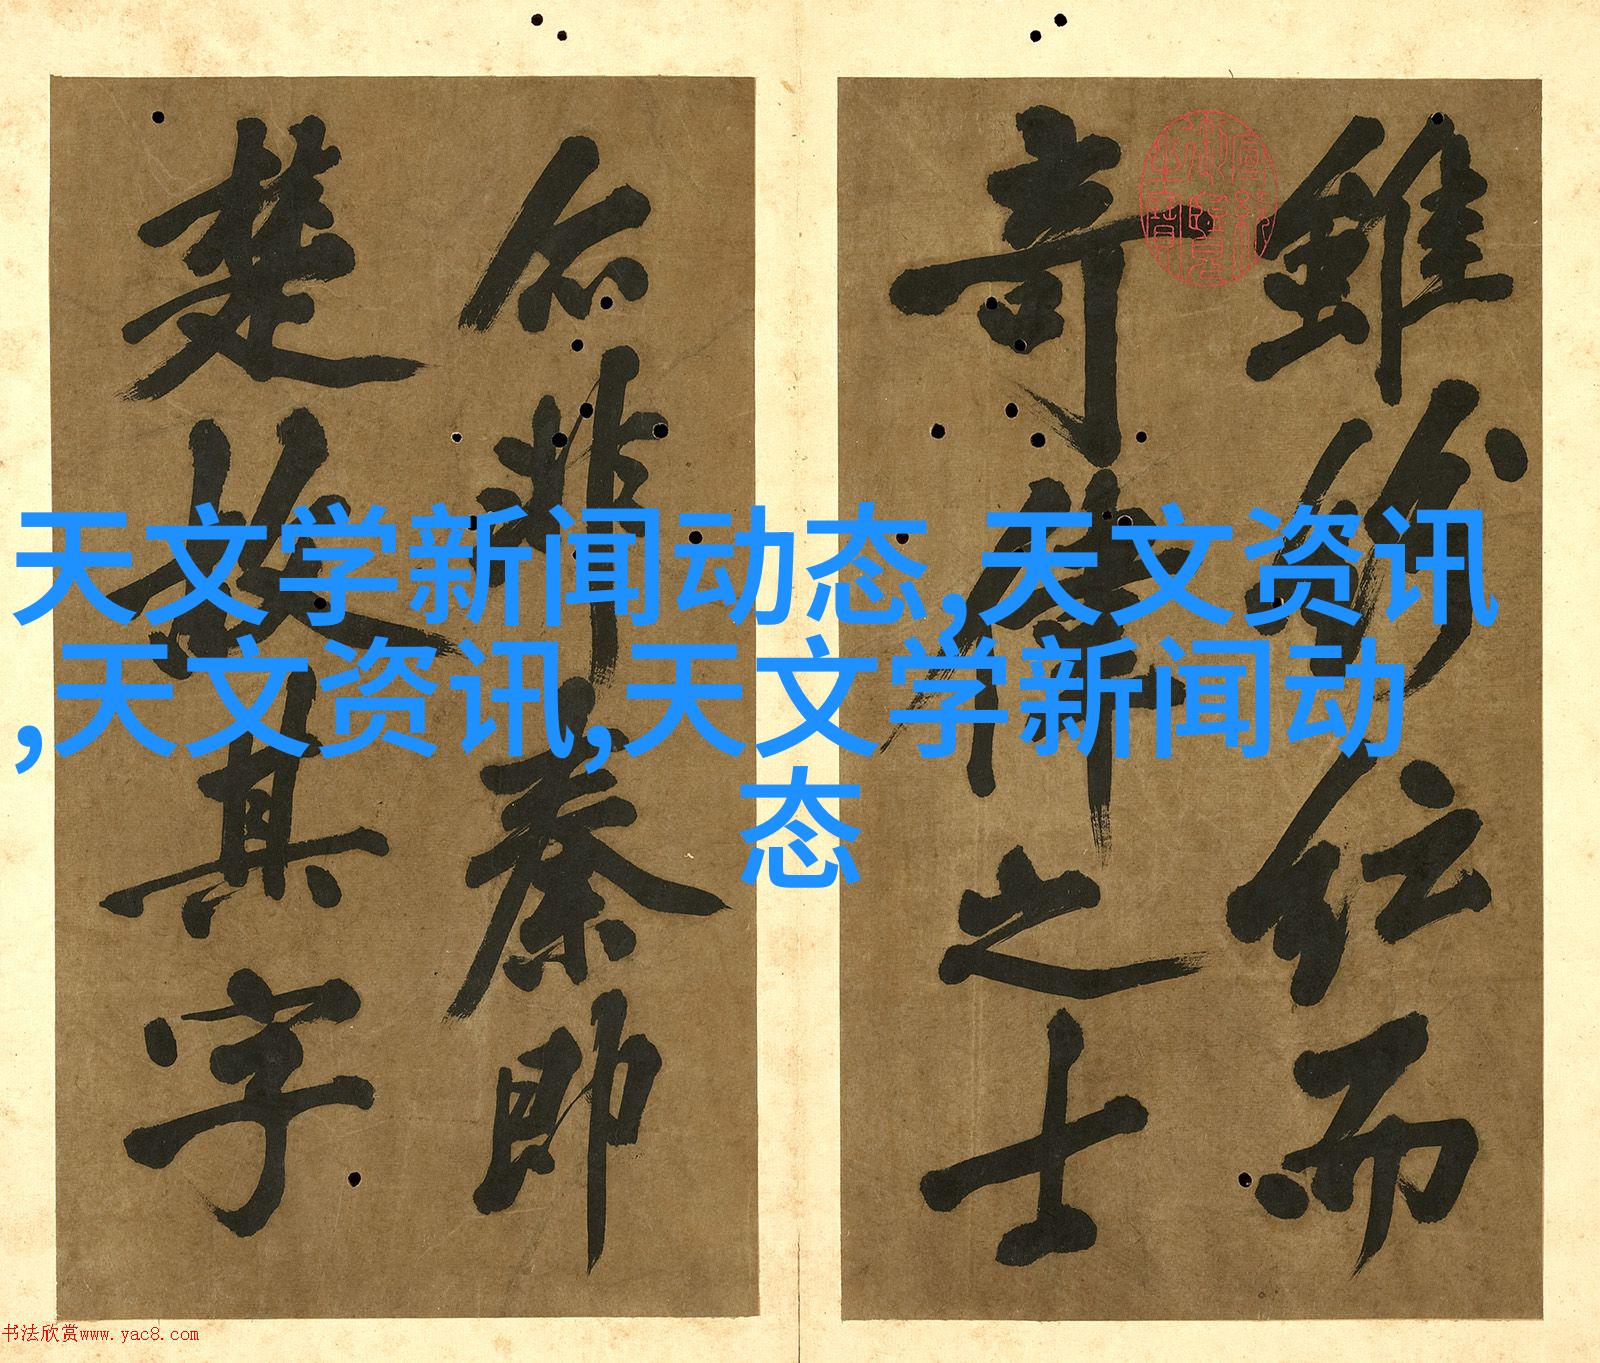 雖紛紜而
奇偉之士
非秦即
楚故其字
天文学新闻动态,天文资讯
,天文资讯,天文学新闻动
态
书法欣赏www.yac8.com